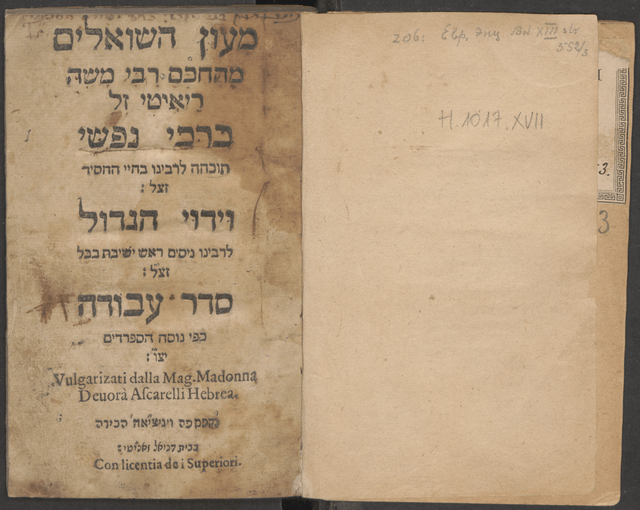 מעון השואלים
מהחכם רבי משה
ריאיטי זל
ברכי נפשי
תוכחה לרבינו בחיי החסיד
זצל :
וידוי הגדול
לרבינו ניסים ראש ישיבת בבל
זצל :
סדר עבודה
כפי נוסח הספרדים
יצו :
Vulgarizati dalla Mag. Madonna
Deuorà Aſcarelli Hebrea.
ויניציאה הבירה
בבית דניאל זאניטי :
Con licentia de i Superiori.
206: Евр. Энц Вы XIII
552/3
H. 1017. XVII
3.
3